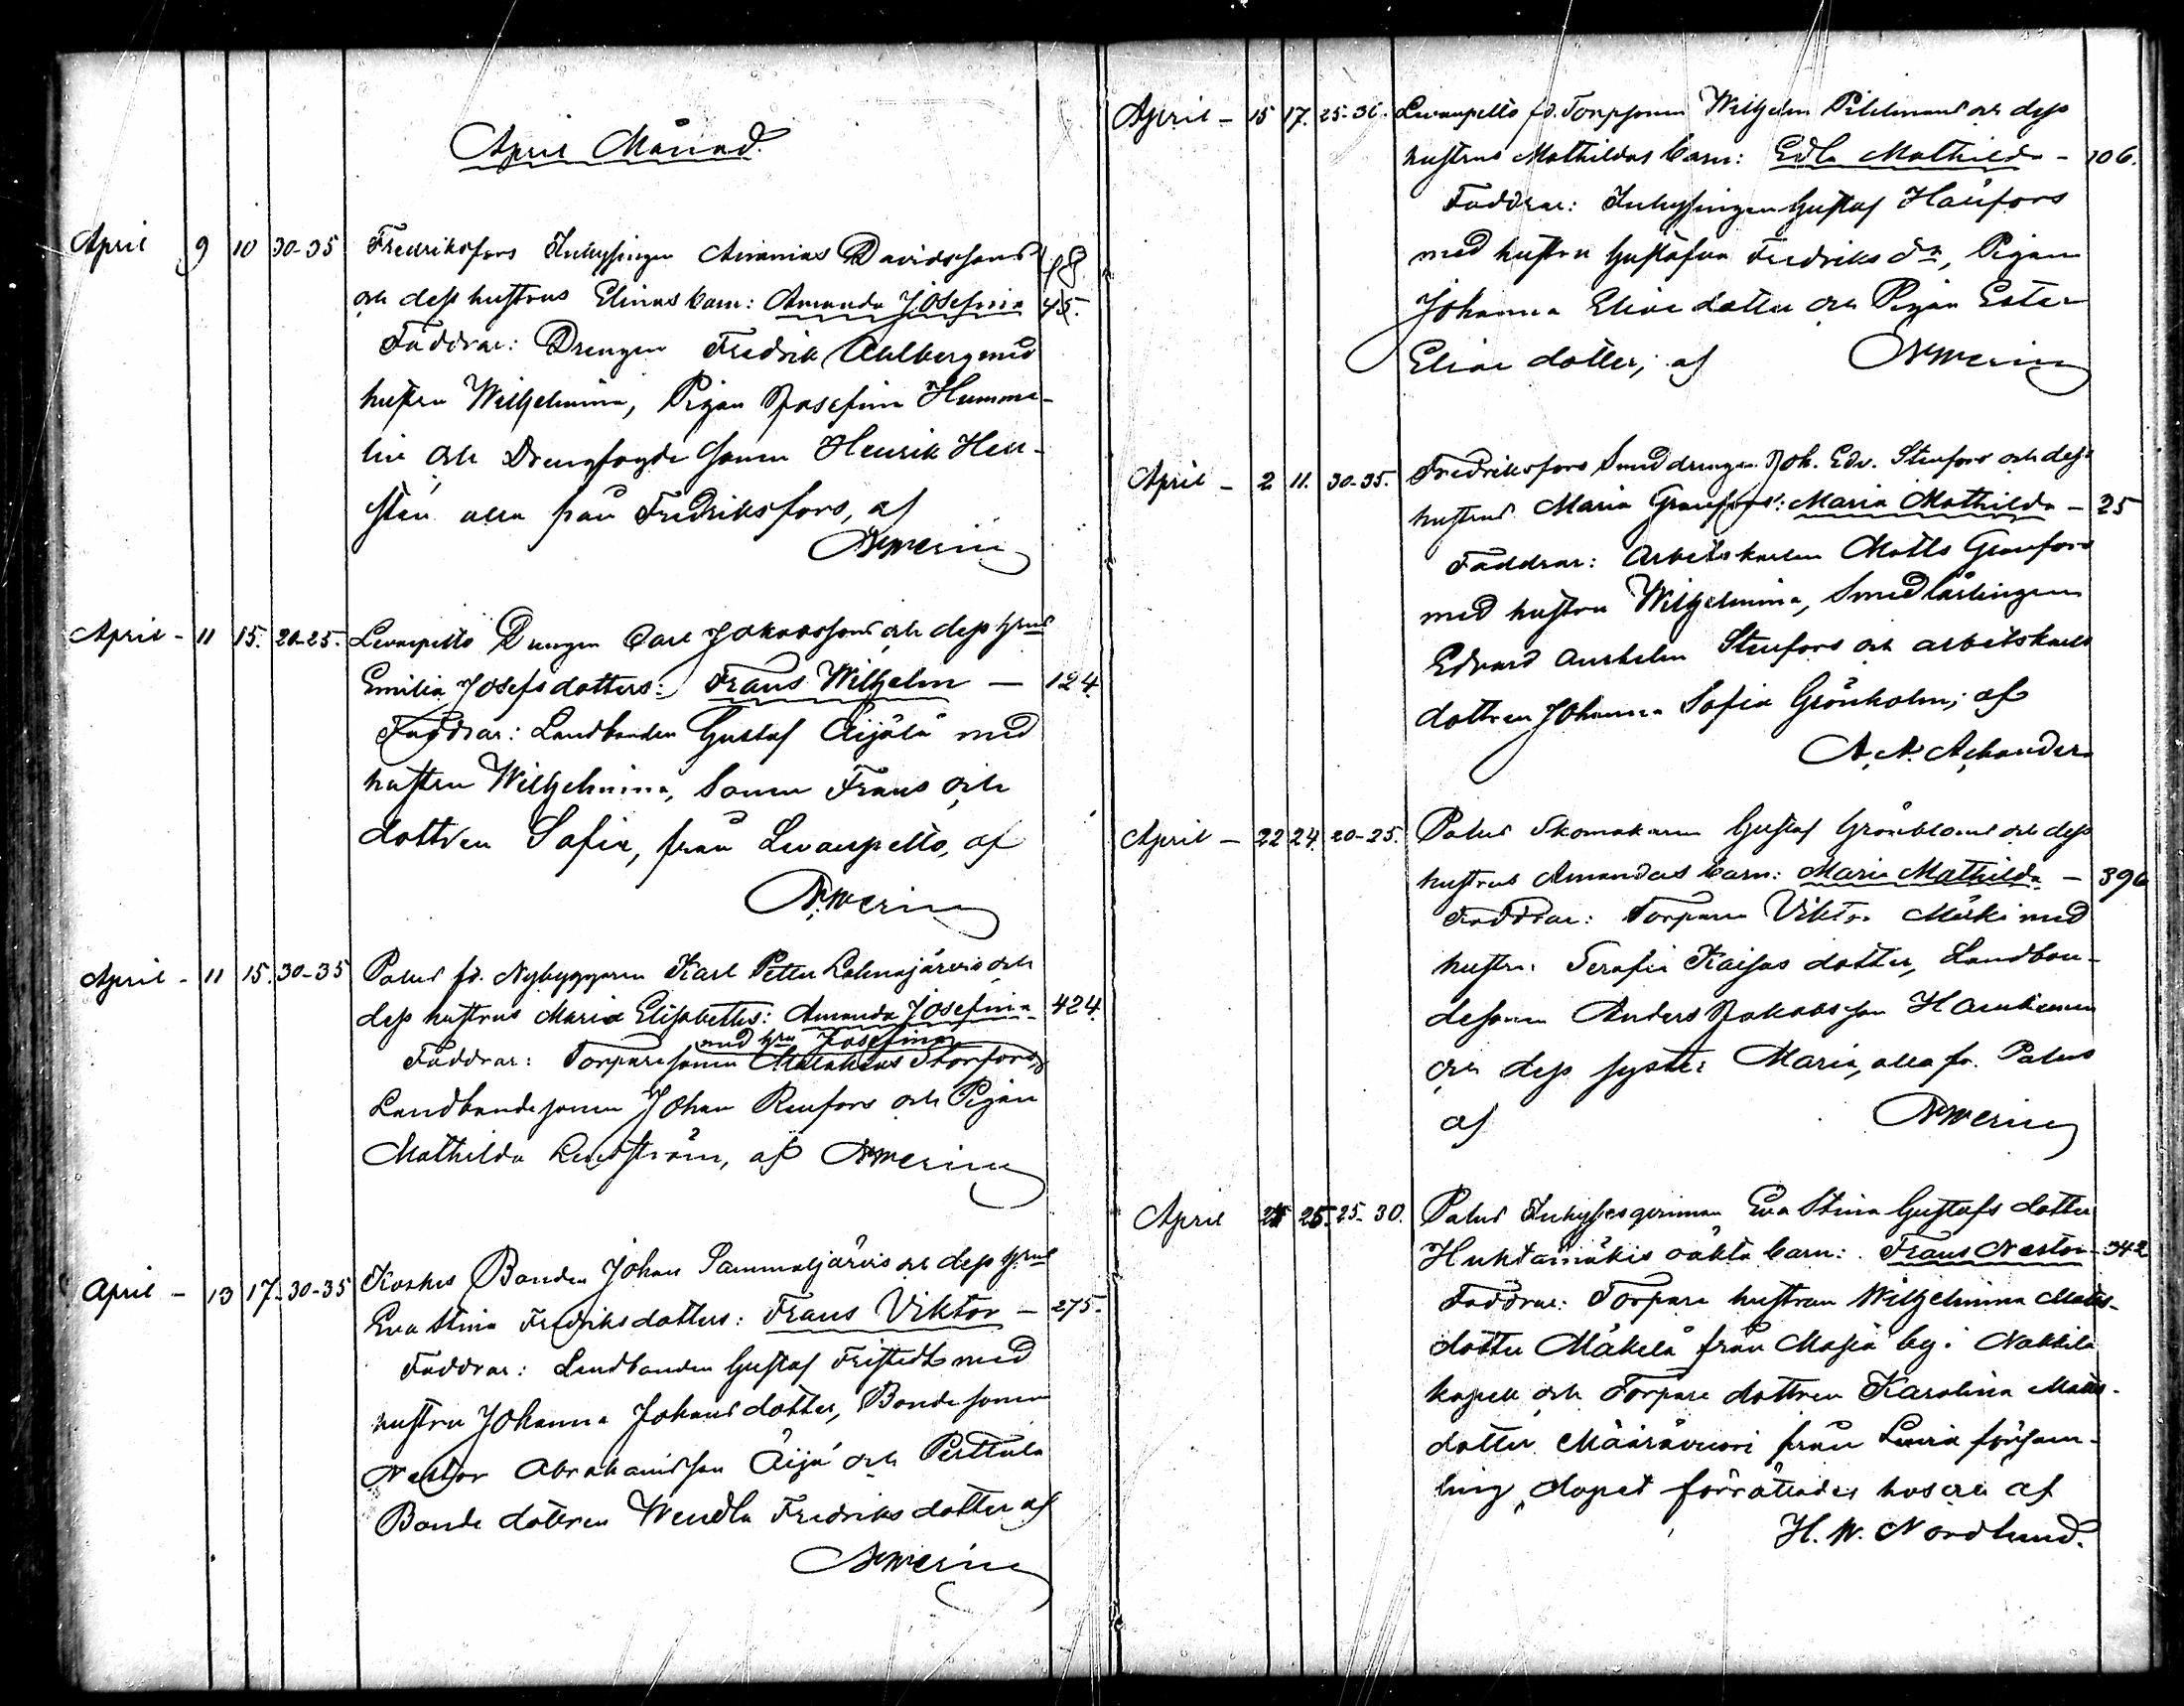 April Månad.
April 9 10 30-35 Fredriksfors Inhysingen Ananias Davidssons 48
och dess hustrus Elinas barn: Amanda Josefina 45.
Faddrar: Drengen Fredrik Ahlberg med
hustru Wilhelmina, Pigan Josefina Humme-
lin och Drengfogde sonen Henrik Hell-
stén alla från Fredriksfors, af
April - 11 15. 20-25. Levanpelto Drengen Carl Jakobssons och dess hrus
Emilia Josefsdotters: Frans Wilhelm - 124.
Faddrar: Landbonden Gustaf Äijälä med
hustru Wilhelmina, Sonen Frans och
dottren Sofia, från Levanpelto, af
April - 11 15. 30-35 Palus fd. Nybyggaren Karl Petter Lahnajärvis och
dess hustrus Maria Elisabeths: Amanda Josefina 424.
med hru Josefina
Faddrar: Torpare sonen Malakias Storfors,
Landbonde sonen Johan Renfors och Pigan
Mathilda Lindström, af
April - 13 17. 30-35 Koskis Bonden Johan Sammaljärvis och dess hrus
Eva Stina Fredriksdotters: Frans Viktor - 275.
Faddrar: Landbonden Gustaf Fristedt med
hustru Johanna Johansdotter, Bonde sonen
Nestor Abrahamsson Äijä och Perttula
Bonde dottren Wendla Fredriksdotter af
April - 15 17. 25-30. Levanpelto fd. Torpsonen Wilhelm och dess
hustrus Mathildas barn: Edla Mathilda - 106.
Faddrar: Inhysingen Gustaf Hanfors
med hustru Gustafva Fredriks dr, Pigan
Johanna Elias dotter och Pigan Ester
Elias dotter; af
April - 2 11. 30-35. Fredriksfors Smeddrengen Joh. Edv. Stenfors och dess
hustrus Maria Granfors: Maria Mathilda - 25
Faddrar: Arbetskarlen Matts Granfors
med hustru Wilhelmina, Smedlärlingen
Edvard Anshelm Stenfors och arbetskarls
dottren Johanna Sofia Grönholm; af
April - 22 24. 20-25. Palus Skomakaren Gustaf Grönbloms och dess
hustrus Amandas barn: Maria Mathilda - 396
Faddrar: Torparen Viktor Mäki med
hustru Serafia Kaisas dotter, Landbon-
desonen Anders Jakobsson
och dess syster Maria, alla fr. Palus
af
April 24 25. 25-30. Palus Inhysesqvinnan Eva Stina Gustafs dotter
Huhtamäkis oäkta barn: Frans Nestor - 342
Faddrar: Torpare hustrun Wilhelmina Matts-
dotter Mäkelä från Masia by i Nakkila
kapell och Torpare dottren Karolina Matts-
dotter Määrävuori från Luvia försam-
ling, dopet förrättades af
H. W. Nordlund.